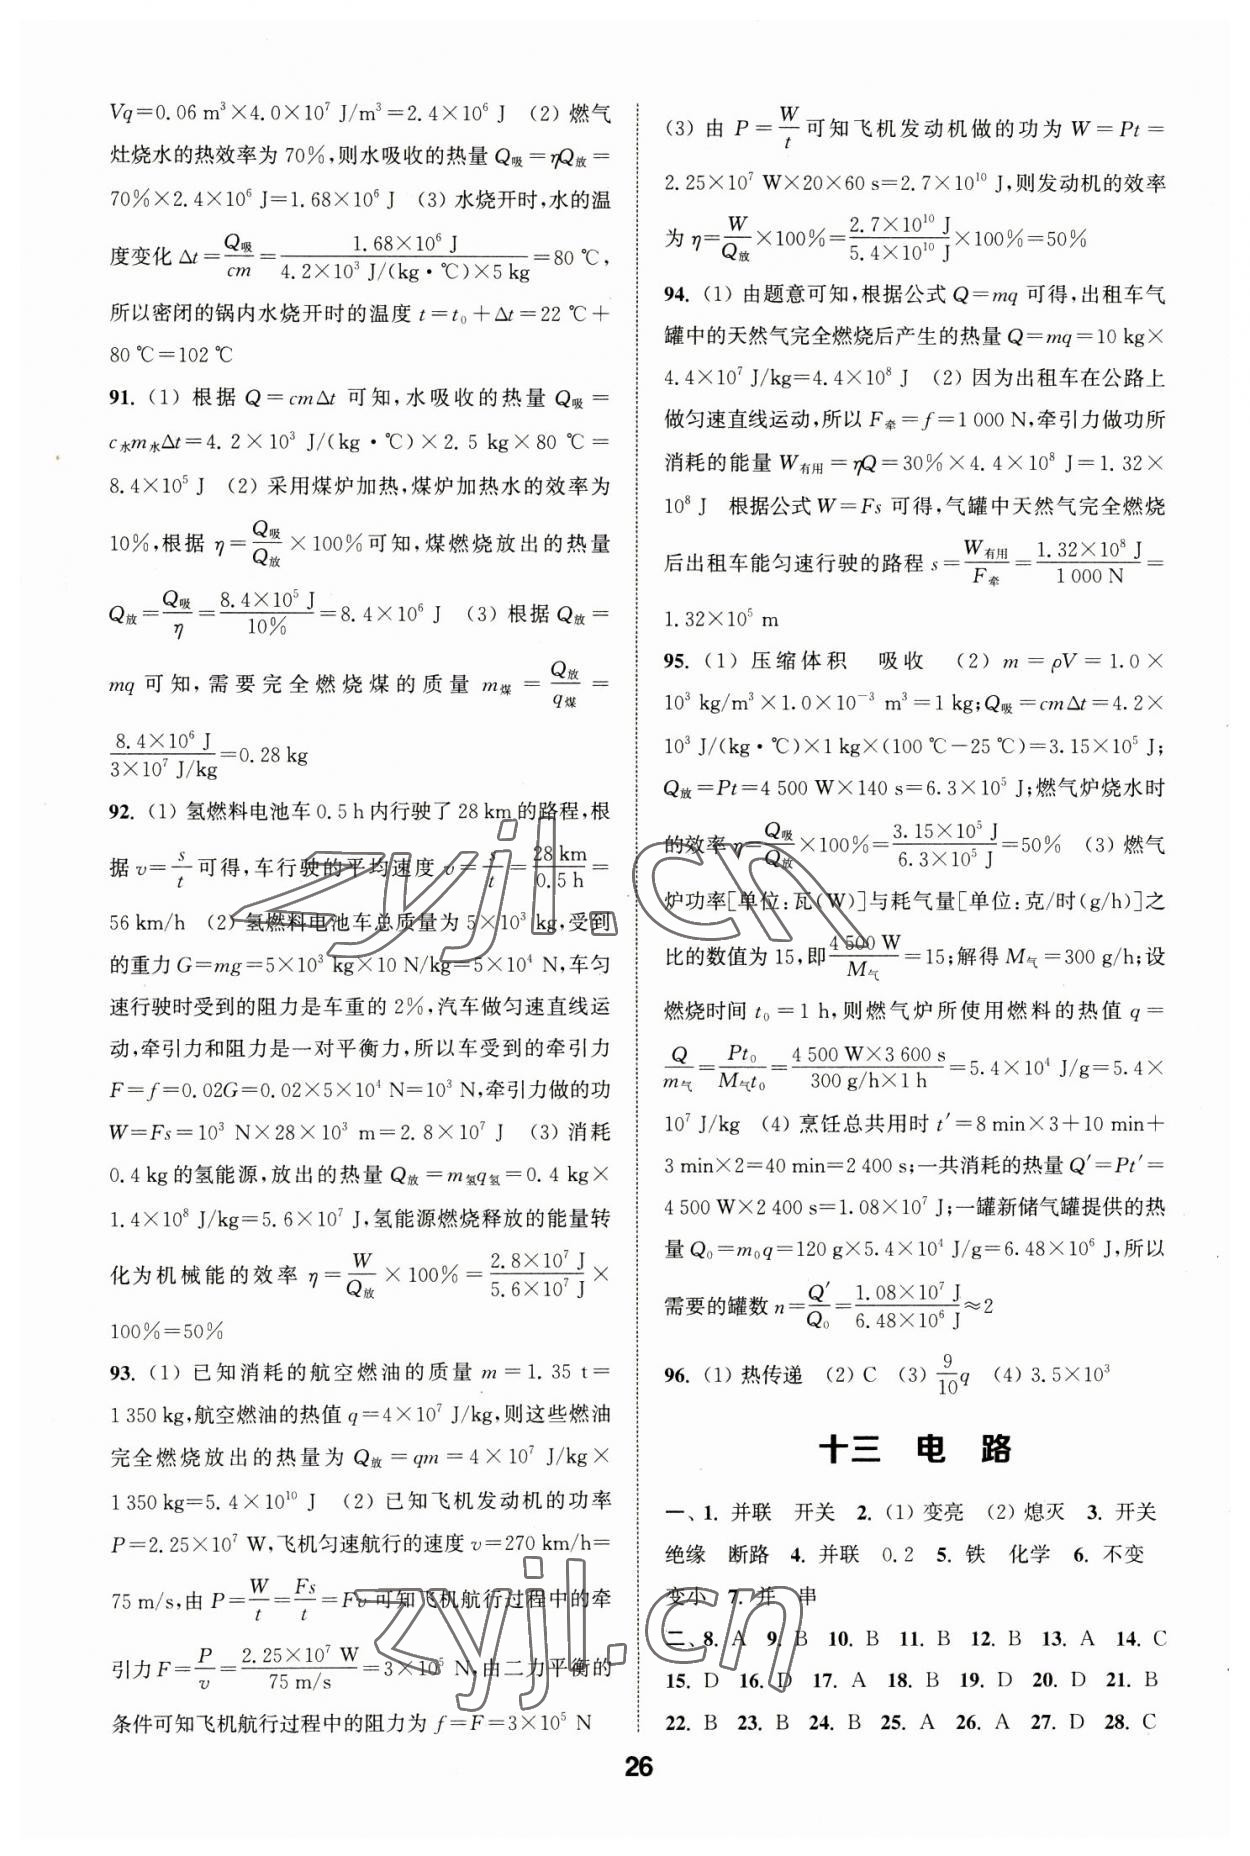 Vq=0.06 m³×4.0×10⁷ J/m³=2.4×10⁶ J (2) 燃气
灶烧水的热效率为70%,则水吸收的热量Q吸=ηQ放=
70%×2.4×10⁶ J=1.68×10⁶ J (3) 水烧开时,水的温
度变化 Δt=Q吸/cm=1.68×10⁶ J/4.2×10³ J/(kg·℃)×5 kg=80 ℃,
所以密闭的锅内水烧开时的温度 t=t₀+Δt=22 ℃+
80 ℃=102 ℃
91. (1) 根据 Q=cmΔt 可知,水吸收的热量 Q吸=
c水m水Δt=4.2×10³ J/(kg·℃)×2.5 kg×80 ℃=
8.4×10⁵ J (2) 采用煤炉加热,煤炉加热水的效率为
10%,根据 η=Q吸/Q放×100%可知,煤燃烧放出的热量
Q放=Q吸/η=8.4×10⁵ J/10%=8.4×10⁶ J (3) 根据 Q放=
mq 可知,需要完全燃烧煤的质量 m煤=Q放/q煤=
8.4×10⁶ J/3×10⁷ J/kg=0.28 kg
92. (1) 氢燃料电池车0.5 h内行驶了28 km的路程,根
据 v=s/t可得,车行驶的平均速度 v=s/t=28 km/0.5 h=
56 km/h (2) 氢燃料电池车总质量为5×10³ kg,受到
的重力G=mg=5×10³ kg×10 N/kg=5×10⁴ N,车匀
速行驶时受到的阻力是车重的2%,汽车做匀速直线运
动,牵引力和阻力是一对平衡力,所以车受到的牵引力
F=f=0.02G=0.02×5×10⁴ N=10³ N,牵引力做的功
W=Fs=10³ N×28×10³ m=2.8×10⁷ J (3) 消耗
0.4 kg的氢能源,放出的热量 Q放=m氢q氢=0.4 kg×
1.4×10⁸ J/kg=5.6×10⁷ J,氢能源燃烧释放的能量转
化为机械能的效率 η=W/Q放×100%=2.8×10⁷ J/5.6×10⁷ J×
100%=50%
93. (1) 已知消耗的航空燃油的质量 m=1.35 t=
1 350 kg,航空燃油的热值 q=4×10⁷ J/kg,则这些燃油
完全燃烧放出的热量为 Q放=qm=4×10⁷ J/kg×
1 350 kg=5.4×10¹⁰ J (2) 已知飞机发动机的功率
P=2.25×10⁷ W,飞机匀速航行的速度 v=270 km/h=
75 m/s,由 P=W/t=Fs/t=Fv 可知飞机航行过程中的牵
引力 F=P/v=2.25×10⁷ W/75 m/s=3×10⁵ N,由二力平衡的
条件可知飞机航行过程中的阻力为 f=F=3×10⁵ N
(3) 由 P=W/t可知飞机发动机做的功为 W=Pt=
2.25×10⁷ W×20×60 s=2.7×10¹⁰ J,则发动机的效率
为 η=W/Q放×100%=2.7×10¹⁰ J/5.4×10¹⁰ J×100%=50%
94. (1) 由题意可知,根据公式 Q=mq 可得,出租车气
罐中的天然气完全燃烧后产生的热量 Q=mq=10 kg×
4.4×10⁷ J/kg=4.4×10⁸ J (2) 因为出租车在公路上
做匀速直线运动,所以 F牵=f=1 000 N,牵引力做功所
消耗的能量 W有用=ηQ=30%×4.4×10⁸ J=1.32×
10⁸ J 根据公式 W=Fs 可得,气罐中天然气完全燃烧
后出租车能匀速行驶的路程 s=W有用/F牵=1.32×10⁸ J/1 000 N=
1.32×10⁵ m
95. (1) 压缩体积 吸收 (2) m=ρV=1.0×
10³ kg/m³×1.0×10⁻³ m³=1 kg;Q吸=cmΔt=4.2×
10³ J/(kg·℃)×1 kg×(100 ℃-25 ℃)=3.15×10⁵ J;
Q放=Pt=4 500 W×140 s=6.3×10⁵ J;燃气炉烧水时
的效率 η=Q吸/Q放×100%=3.15×10⁵ J/6.3×10⁵ J=50% (3) 燃气
炉功率[单位:瓦(W)]与耗气量[单位:克/时(g/h)]之
比的数值为15,即4 500 W/M气=15;解得M气=300 g/h;设
燃烧时间 t₀=1 h,则燃气炉所使用燃料的热值 q=
Q/m气=Pt₀/M气t₀=4 500 W×3 600 s/300 g/h×1 h=5.4×10⁴ J/g=5.4×
10⁷ J/kg (4) 烹饪总共用时 t′=8 min×3+10 min+
3 min×2=40 min=2 400 s;一共消耗的热量 Q′=Pt′=
4 500 W×2 400 s=1.08×10⁷ J;一罐新储气罐提供的热
量 Q₀=m₀q=120 g×5.4×10⁴ J/g=6.48×10⁶ J,所以
需要的罐数 n=Q′/Q₀=1.08×10⁷ J/6.48×10⁶ J≈2
96. (1) 热传递 (2) C (3) 9/10q (4) 3.5×10³
十三 电 路
一、1. 并联 开关 2. (1) 变亮 (2) 熄灭 3. 开关
绝缘 断路 4. 并联 0.2 5. 铁 化学 6. 不变
变小 7. 并 串
二、8. A 9. B 10. B 11. B 12. B 13. A 14. C
15. D 16. D 17. A 18. B 19. D 20. D 21. B
22. B 23. B 24. B 25. A 26. A 27. D 28. C
26
zyjl.cn
zyjl.cn